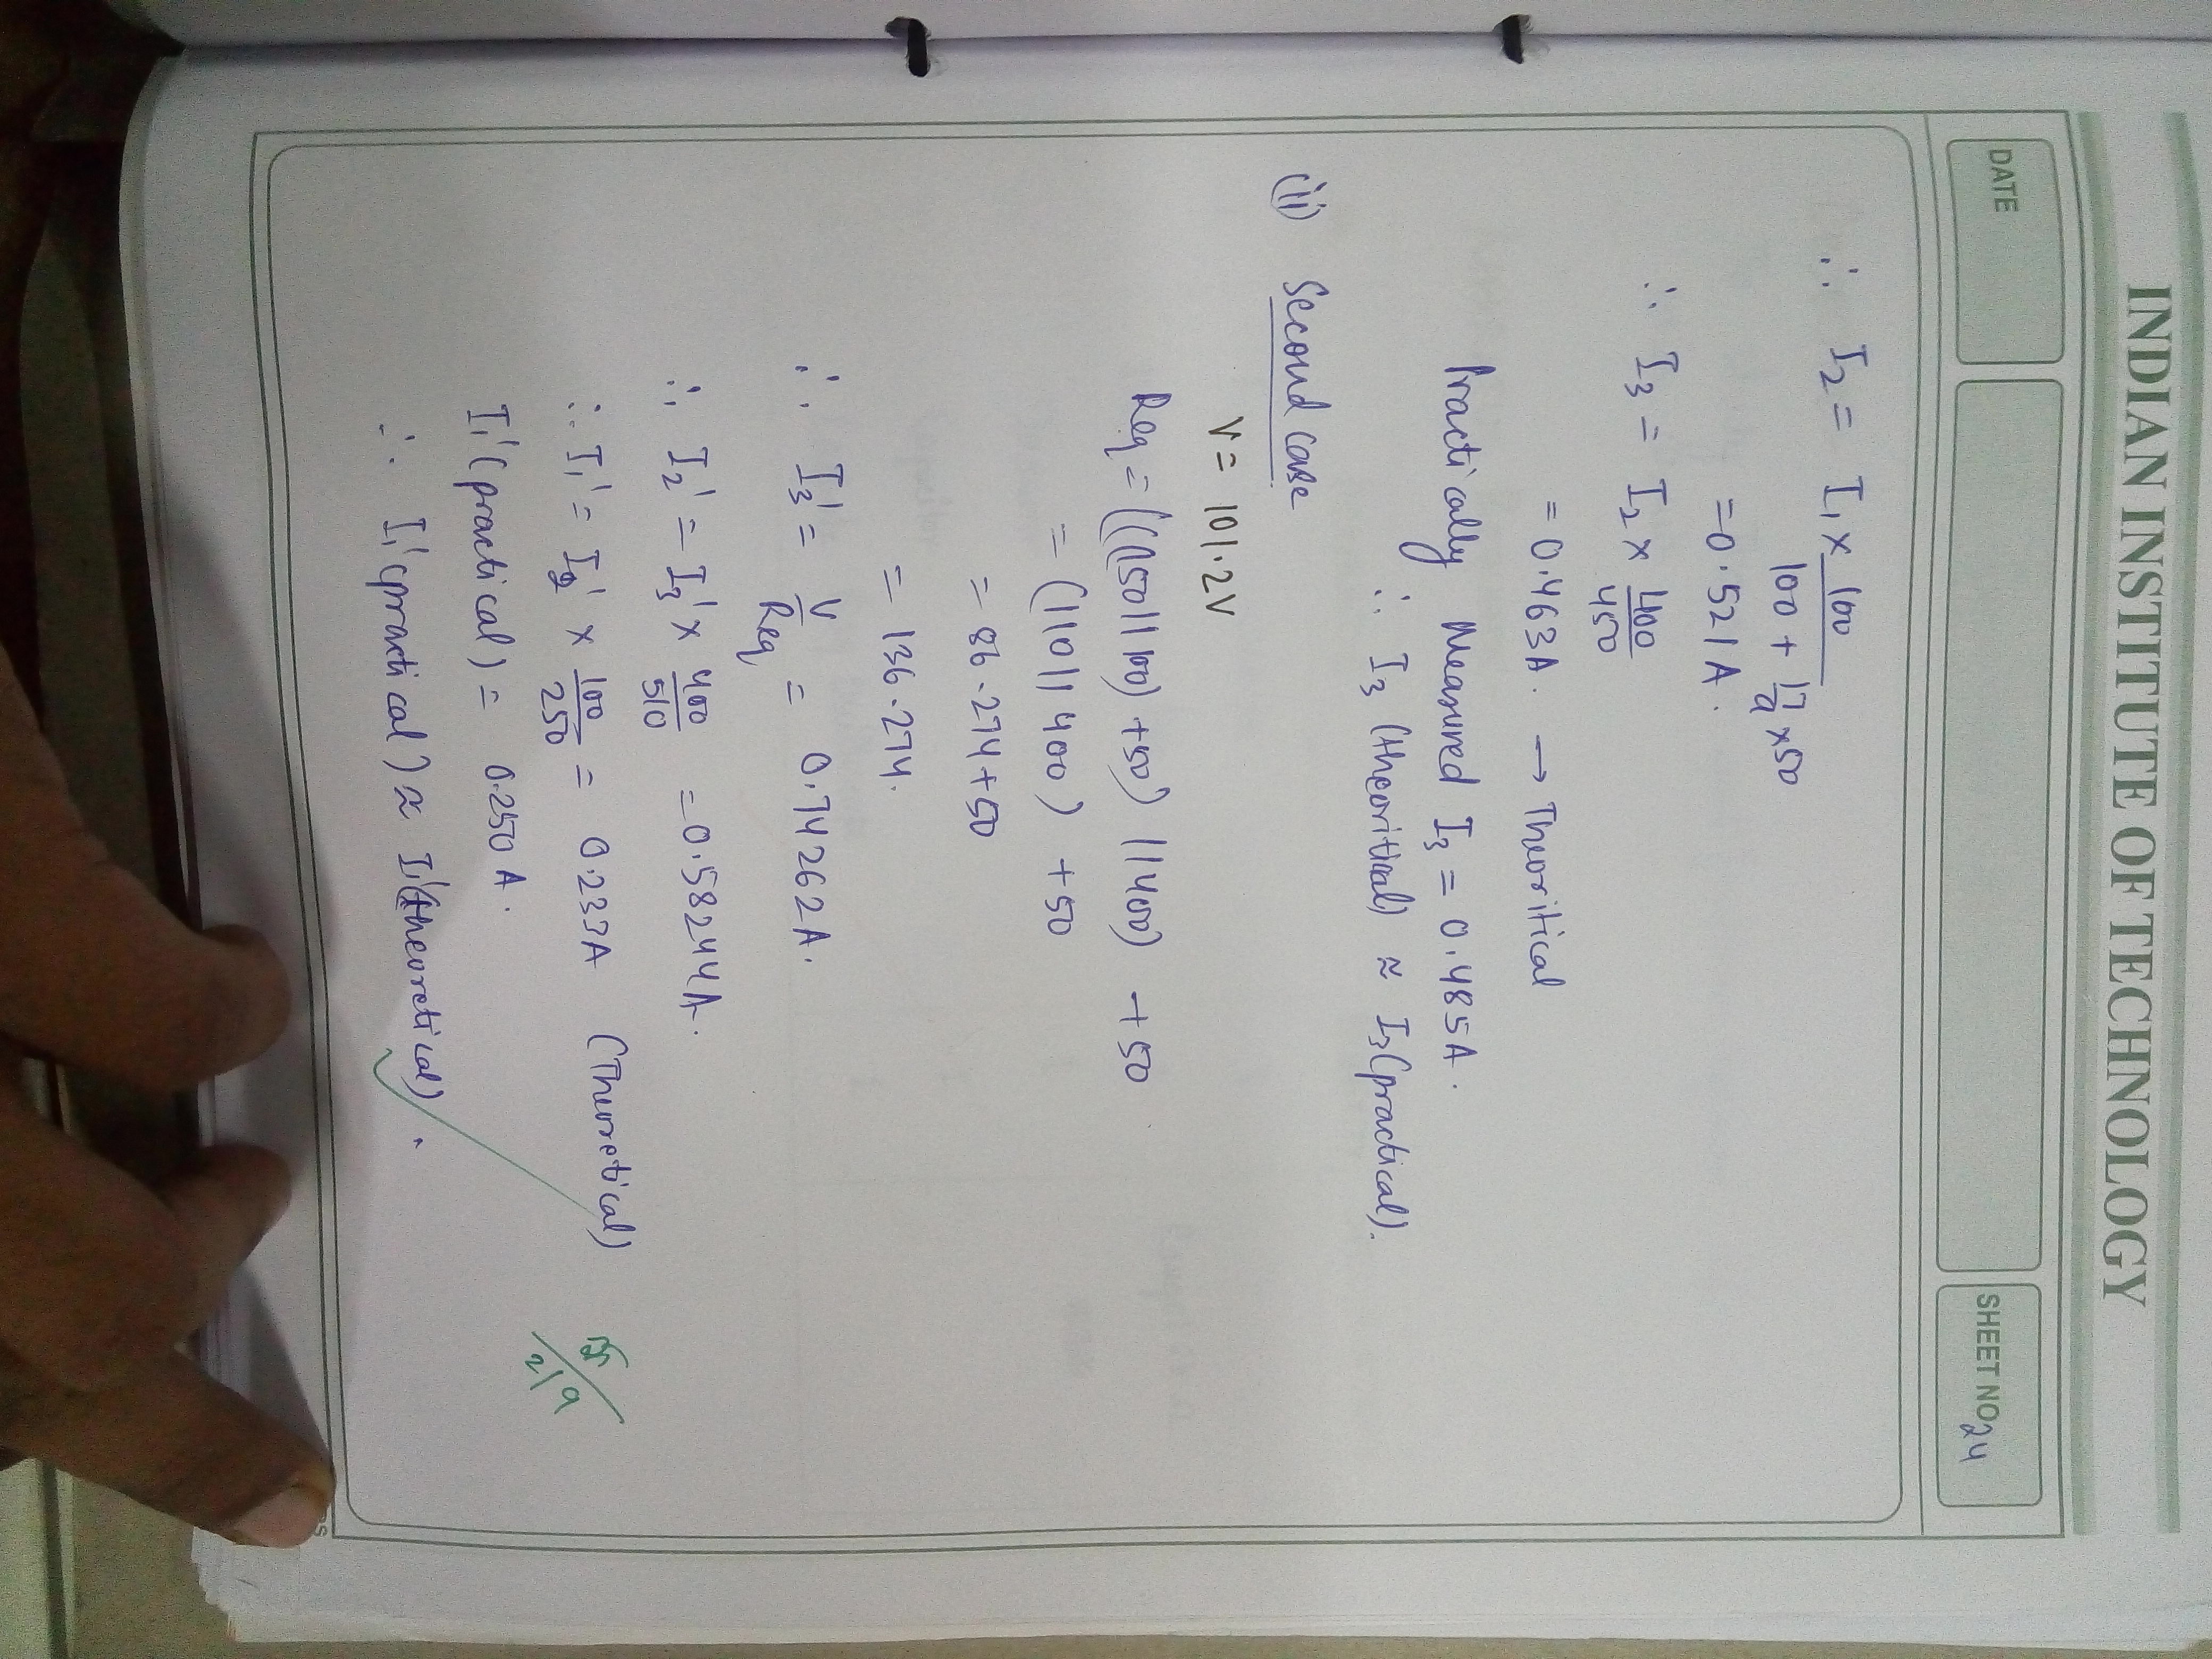 INDIAN INSTITUTE OF TECHNOLOGY
DATE
SHEET NO 24
∴ I₂ = I₁ × 100
100 + 17/9 × 50
= 0.521 A.
∴ I₃ = I₂ × 400/450
= 0.463 A. → Theoritical
Practically Measured I₃ = 0.485 A.
∴ I₃ (theoritical) ≈ I₃ (practical).
(ii) Second case
V = 101.2 V
Req = (((150 || 100) + 50) || 400) + 50
= (110 || 400) + 50
= 86.274 + 50
= 136.274.
∴ I₃' = V/Req = 0.74262 A.
∴ I₂' = I₃' × 400/510 = 0.58244 A.
∴ I₁' = I₂' × 100/250 = 0.233 A (Theoretical)
2/9
I₁' (practical) = 0.250 A.
∴ I₁' (practical) ≈ I₁' (theoretical).